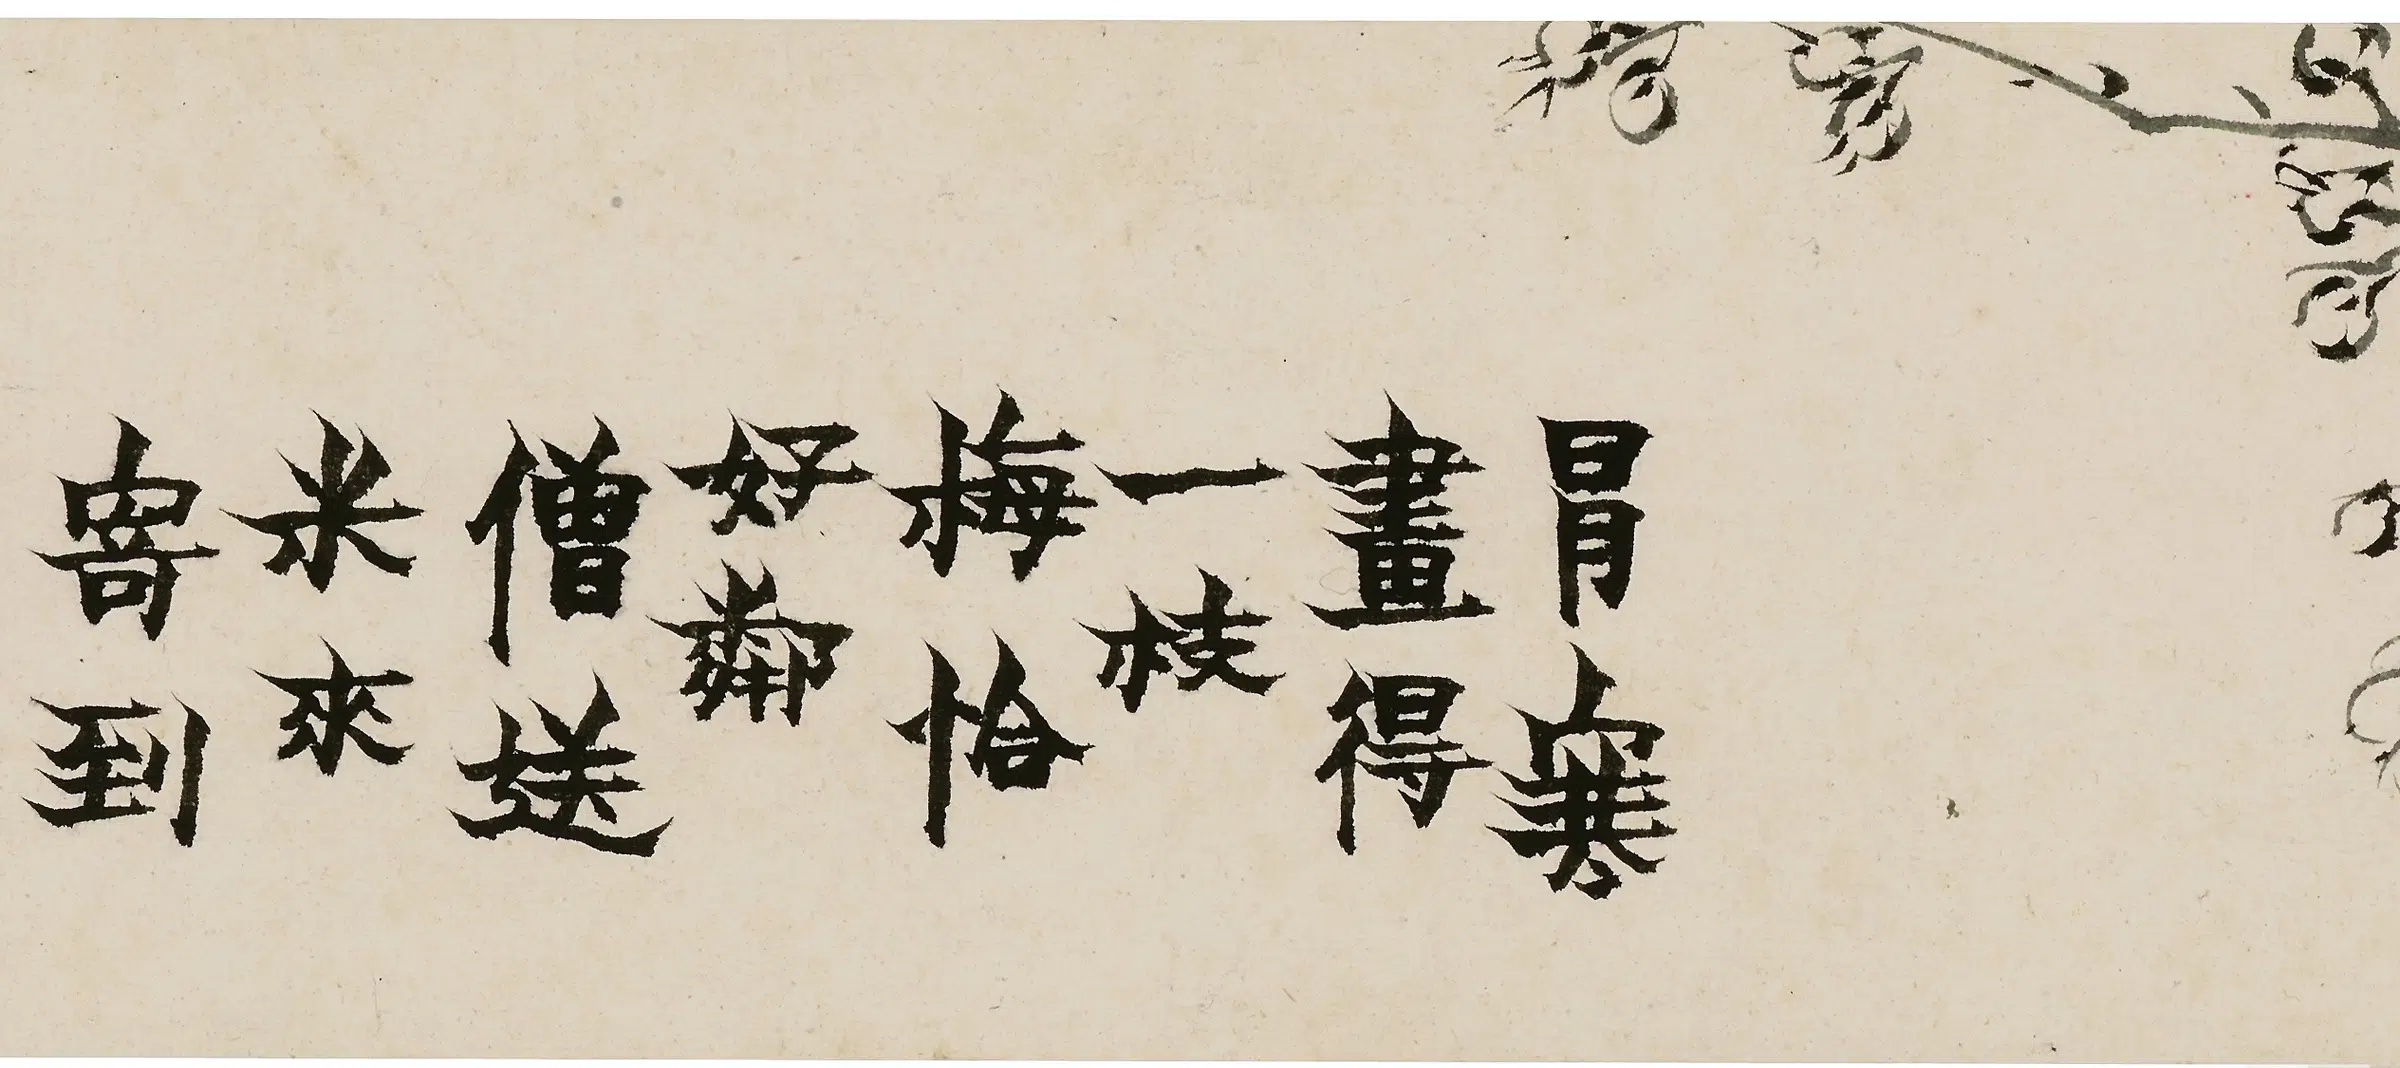 冒寒
畫得
一枝
梅恰
好鄰
僧送
米來
寄到